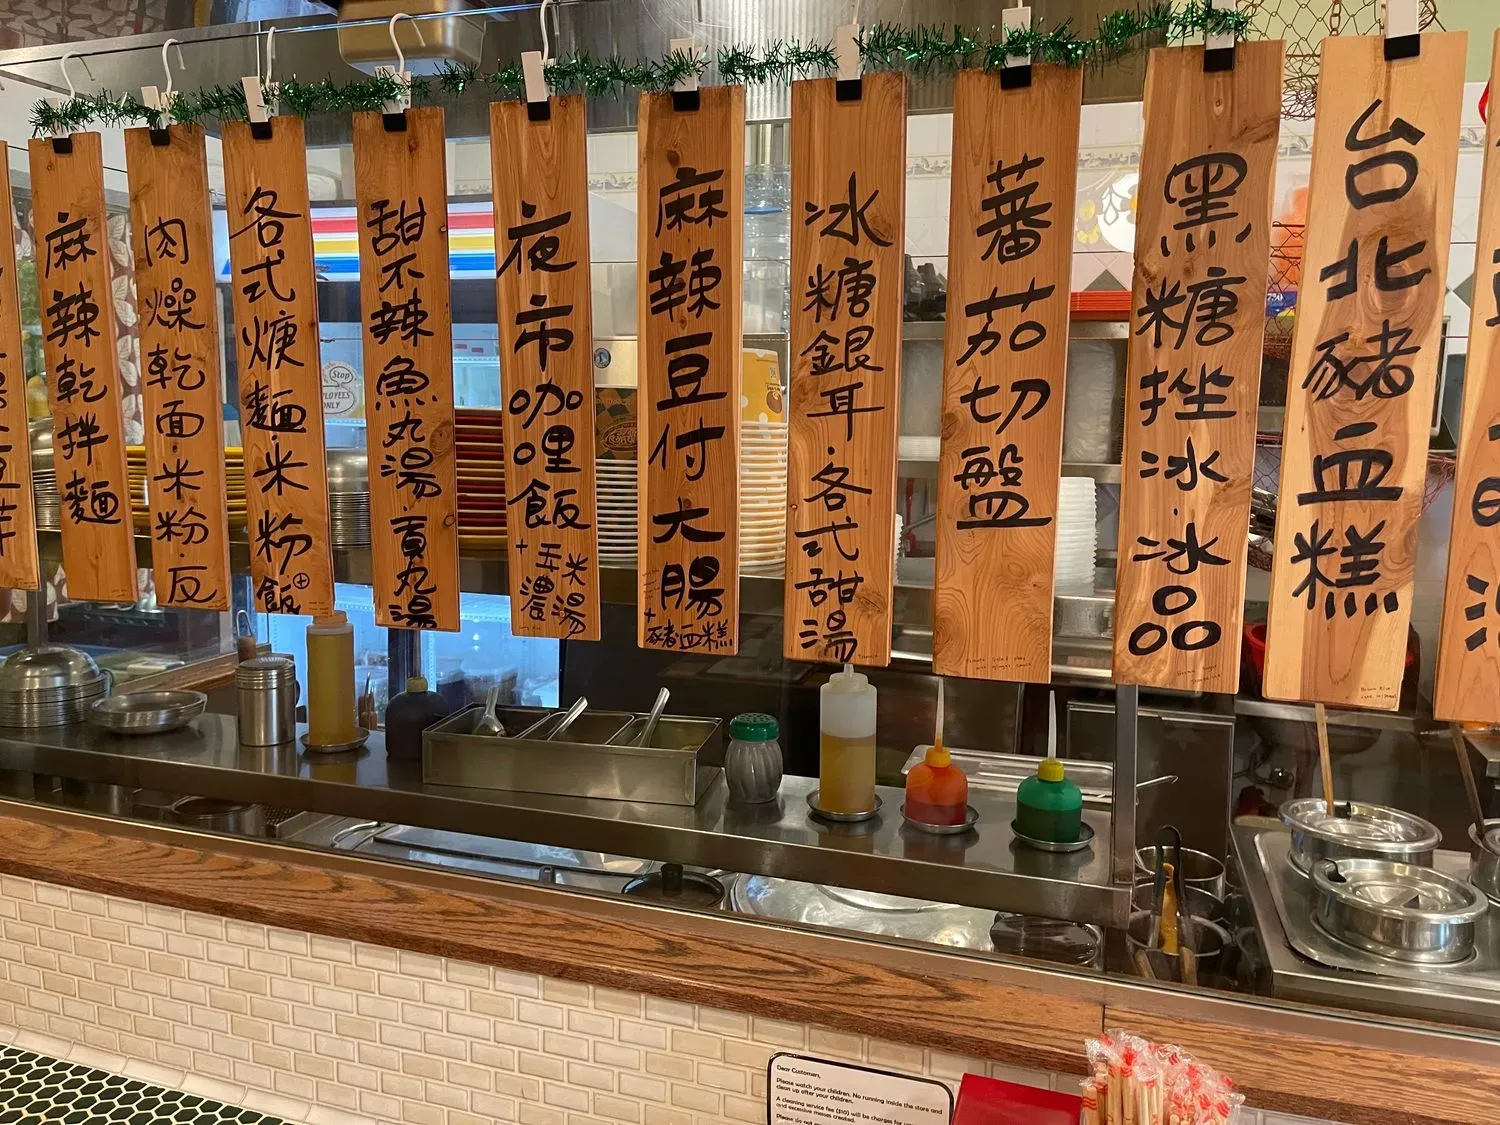 麻辣乾拌麵
肉燥乾面·米粉·反
各式焿麵·米粉
飯
甜不辣魚丸湯·貢丸湯
夜市咖哩飯
+玉米
濃湯
麻辣豆付大腸
+豬血糕
冰糖銀耳·各式甜湯
蕃茄切盤
黑糖挫冰·冰品
台北豬血糕
Stop
EMPLOYEES
ONLY
Dear Customers,
Please watch your children. No running inside the store and
clean up after your children.
A cleaning service fee ($10) will be charges for
and excessive messes created.
Please do not